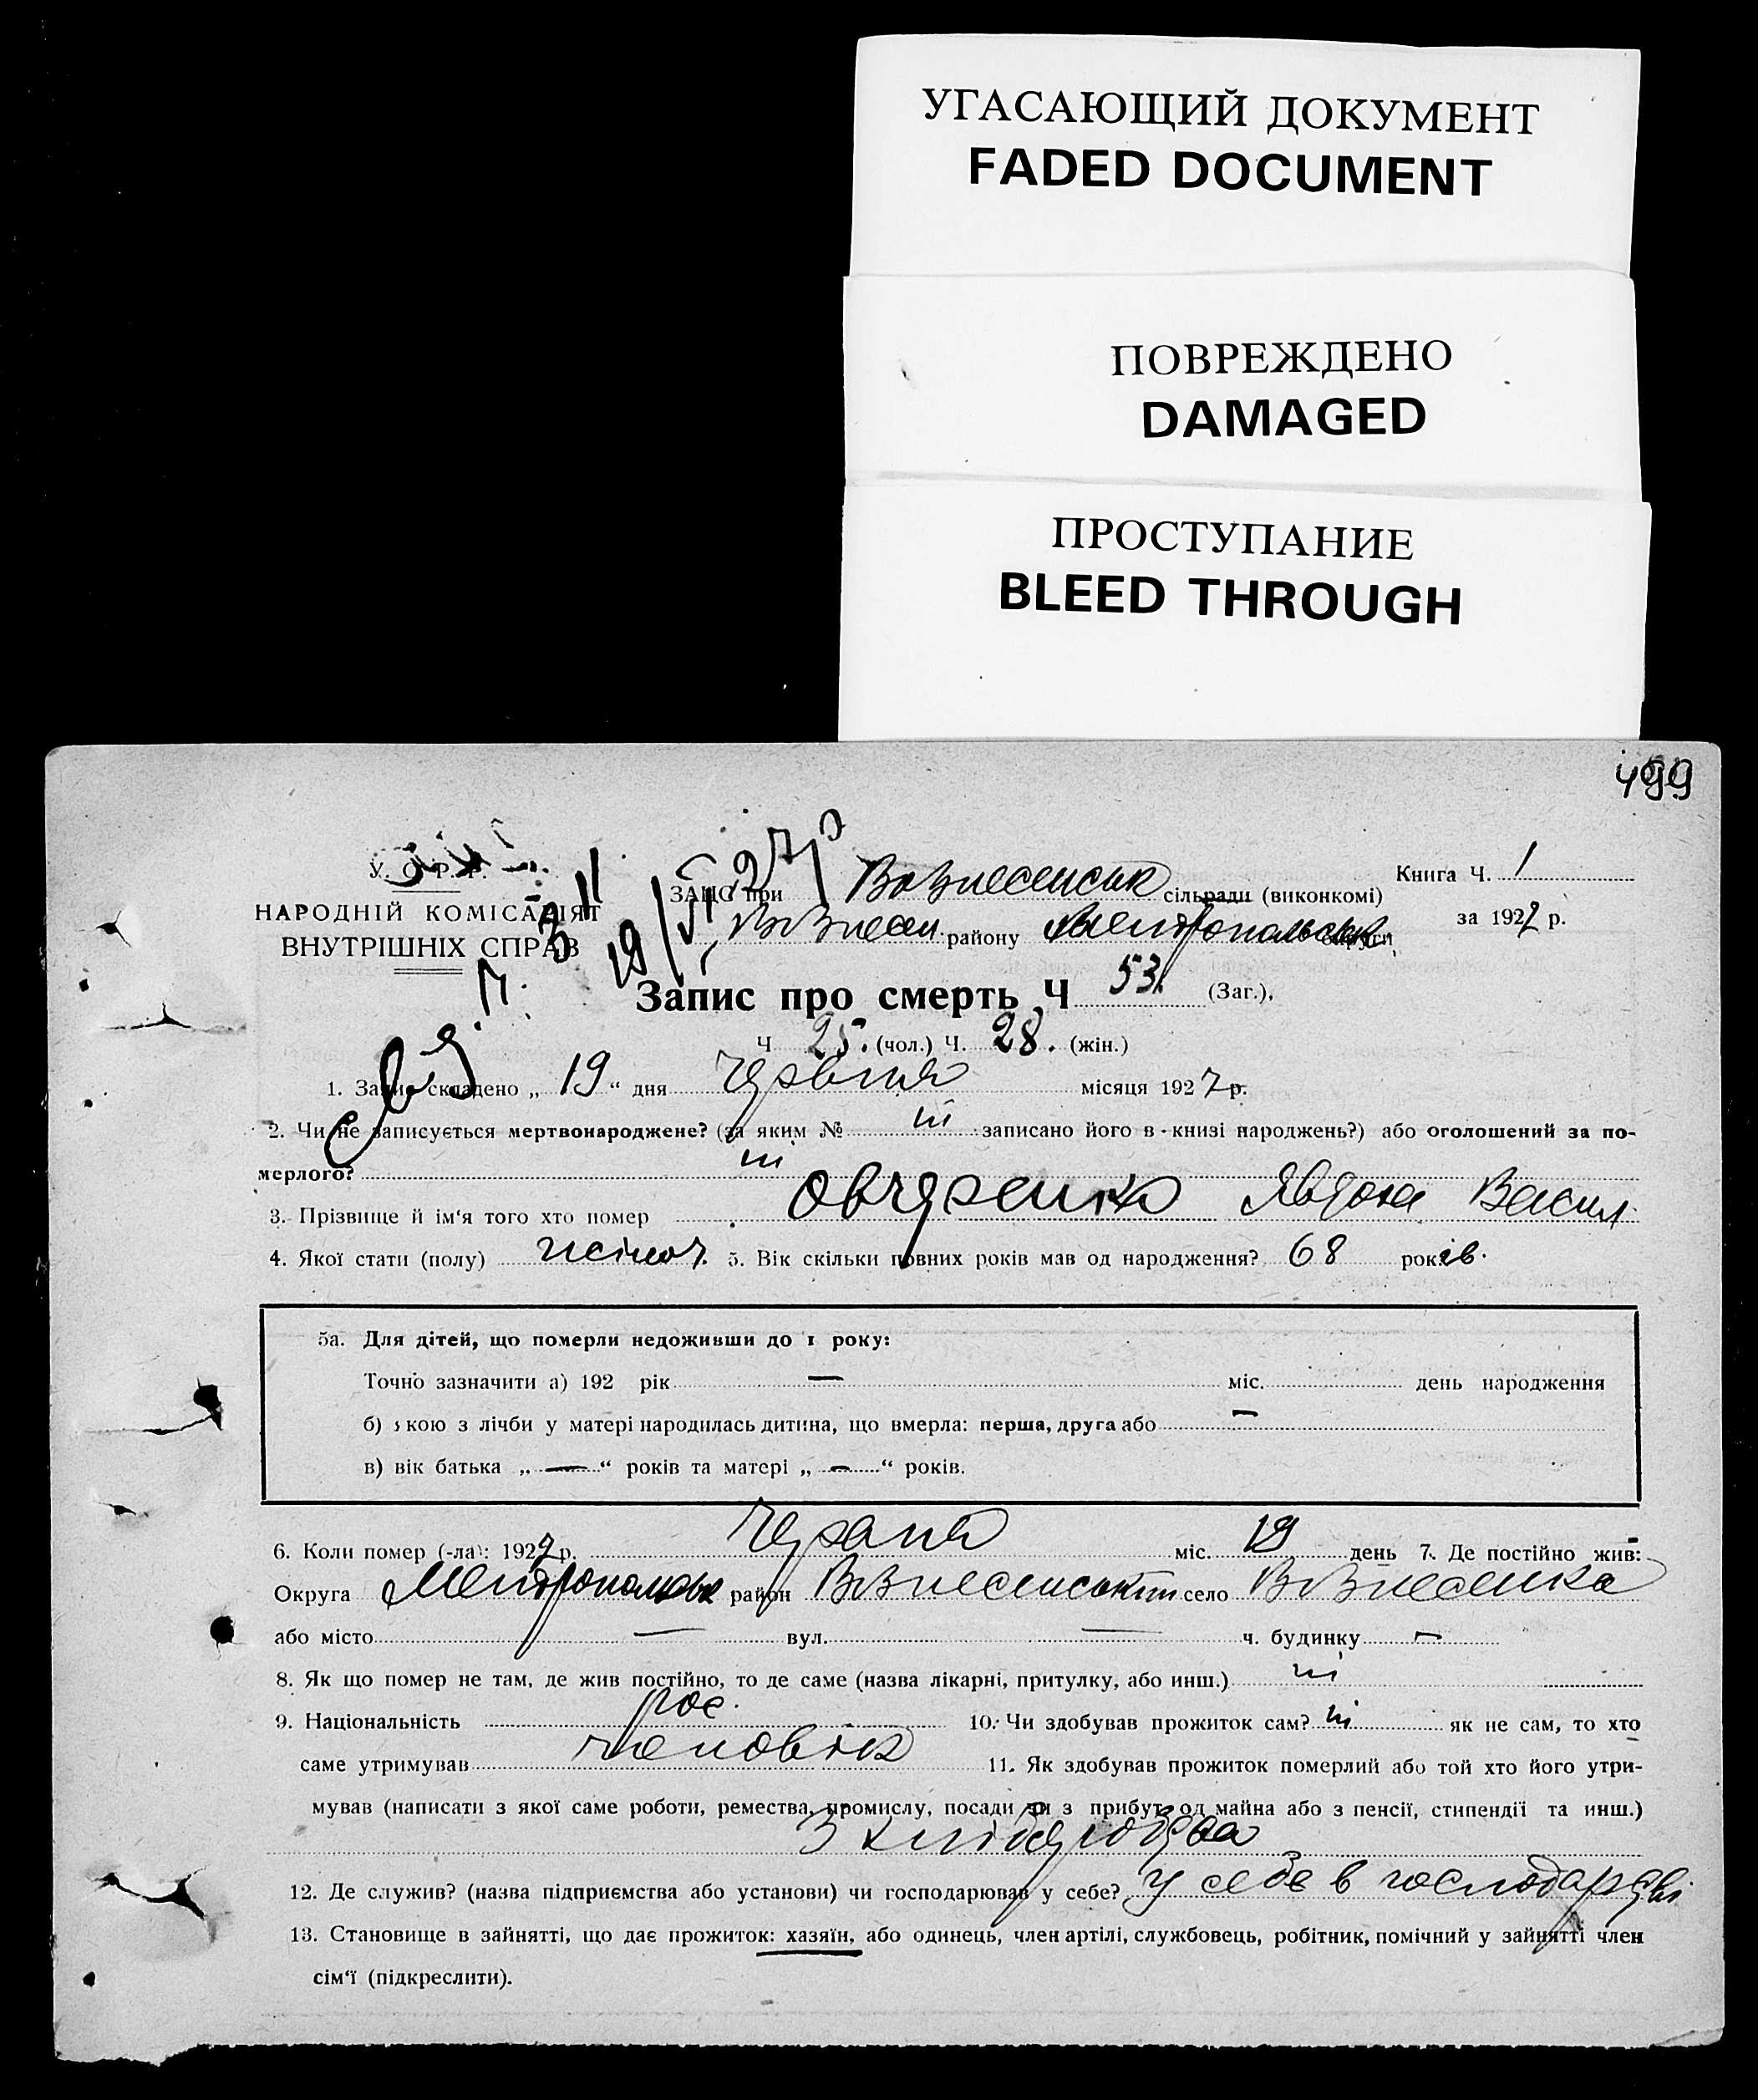 УГАСАЮЩИЙ ДОКУМЕНТ
FADED DOCUMENT
ПОВРЕЖДЕНО
DAMAGED
ПРОСТУПАНИЕ
BLEED THROUGH
499
У. С. Р. Р.
НАРОДНІЙ КОМІСАРІЯТ
ВНУТРІШНІХ СПРАВ
19/VI 27 р
ЗАЦС при Вознесенськ сільради (виконкомі)
Вознесен. району Мелітопольськ. округи
Книга Ч. 1
за 1927 р.
Запис про смерть Ч 53. (Заг.),
Ч 25. (чол.) Ч. 28. (жін.)
1. Запис складено „ 19 “ дня Червня місяця 1927 р.
2. Чи не записується мертвонароджене? (за яким № ні записано його в книзі народжень?) або оголошений за по-
мерлого? ні
3. Прізвище й ім'я того хто помер Овчаренко Явдоха Васил.
4. Якої стати (полу) жіноч. 5. Вік скільки повних років мав од народження? 68 років.
5а. Для дітей, що померли недоживши до 1 року:
Точно зазначити а) 192 рік — міс. день народження
б) якою з лічби у матері народилась дитина, що вмерла: перша, друга або —
в) вік батька „ — “ років та матері „ — “ років.
6. Коли помер (-ла): 1927 р. Червня міс. 19 день 7. Де постійно жив:
Округа Мелітопольськ район Вознесенський село Вознесенка
або місто — вул. — ч. будинку —
8. Як що помер не там, де жив постійно, то де саме (назва лікарні, притулку, або инш.) ні
9. Національність рос. 10. Чи здобував прожиток сам? ні як не сам, то хто
саме утримував чоловік 11. Як здобував прожиток померлий або той хто його утри-
мував (написати з якої саме роботи, ремества, промислу, посади чи з прибут. од майна або з пенсії, стипендії та инш.)
З хлібороб
12. Де служив? (назва підприємства або установи) чи господарював у себе? у себе в господарстві
13. Становище в зайнятті, що дає прожиток: хазяїн, або одинець, член артілі, службовець, робітник, помічний у зайнятті член
сім'ї (підкреслити).